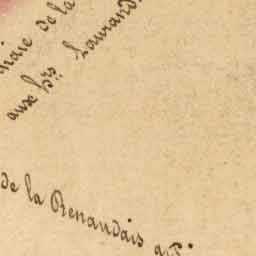 naie de la
aux hrs. Laurand
de la Renaudais